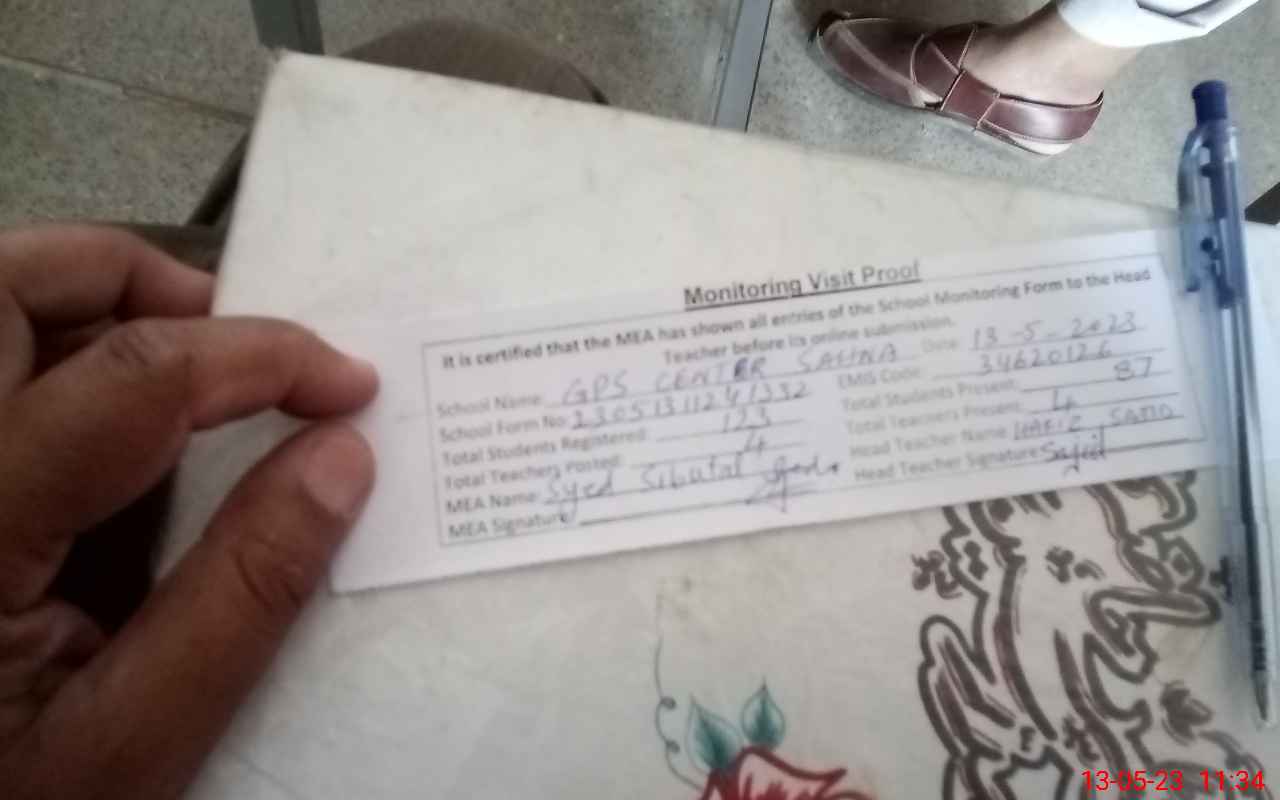 Monitoring Visit Proof
It is certified that the MEA has shown all entries of the School Monitoring Form to the Head
Teacher before its online submission.
School Name: GPS CENTER SAHNA Date: 13-5-2023
School Form No: 23051311241332 EMIS Code: 34620126
Total Students Registered: 123 Total Students Present: 87
Total Teachers Posted: 4 Total Teachers Present: 4
MEA Name: Syed Head Teacher Name: HAFIZ
MEA Signature: Head Teacher Signature: Sajid
13-05-23 11:34